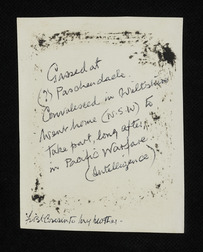 Gassed at
(?) Paschendaele
Convalesced in Wiltshire
Went home (N.S.W) to
Take part, long after,
in Pacific Warfare
(Intelligence)
First Cousin to my Mother.